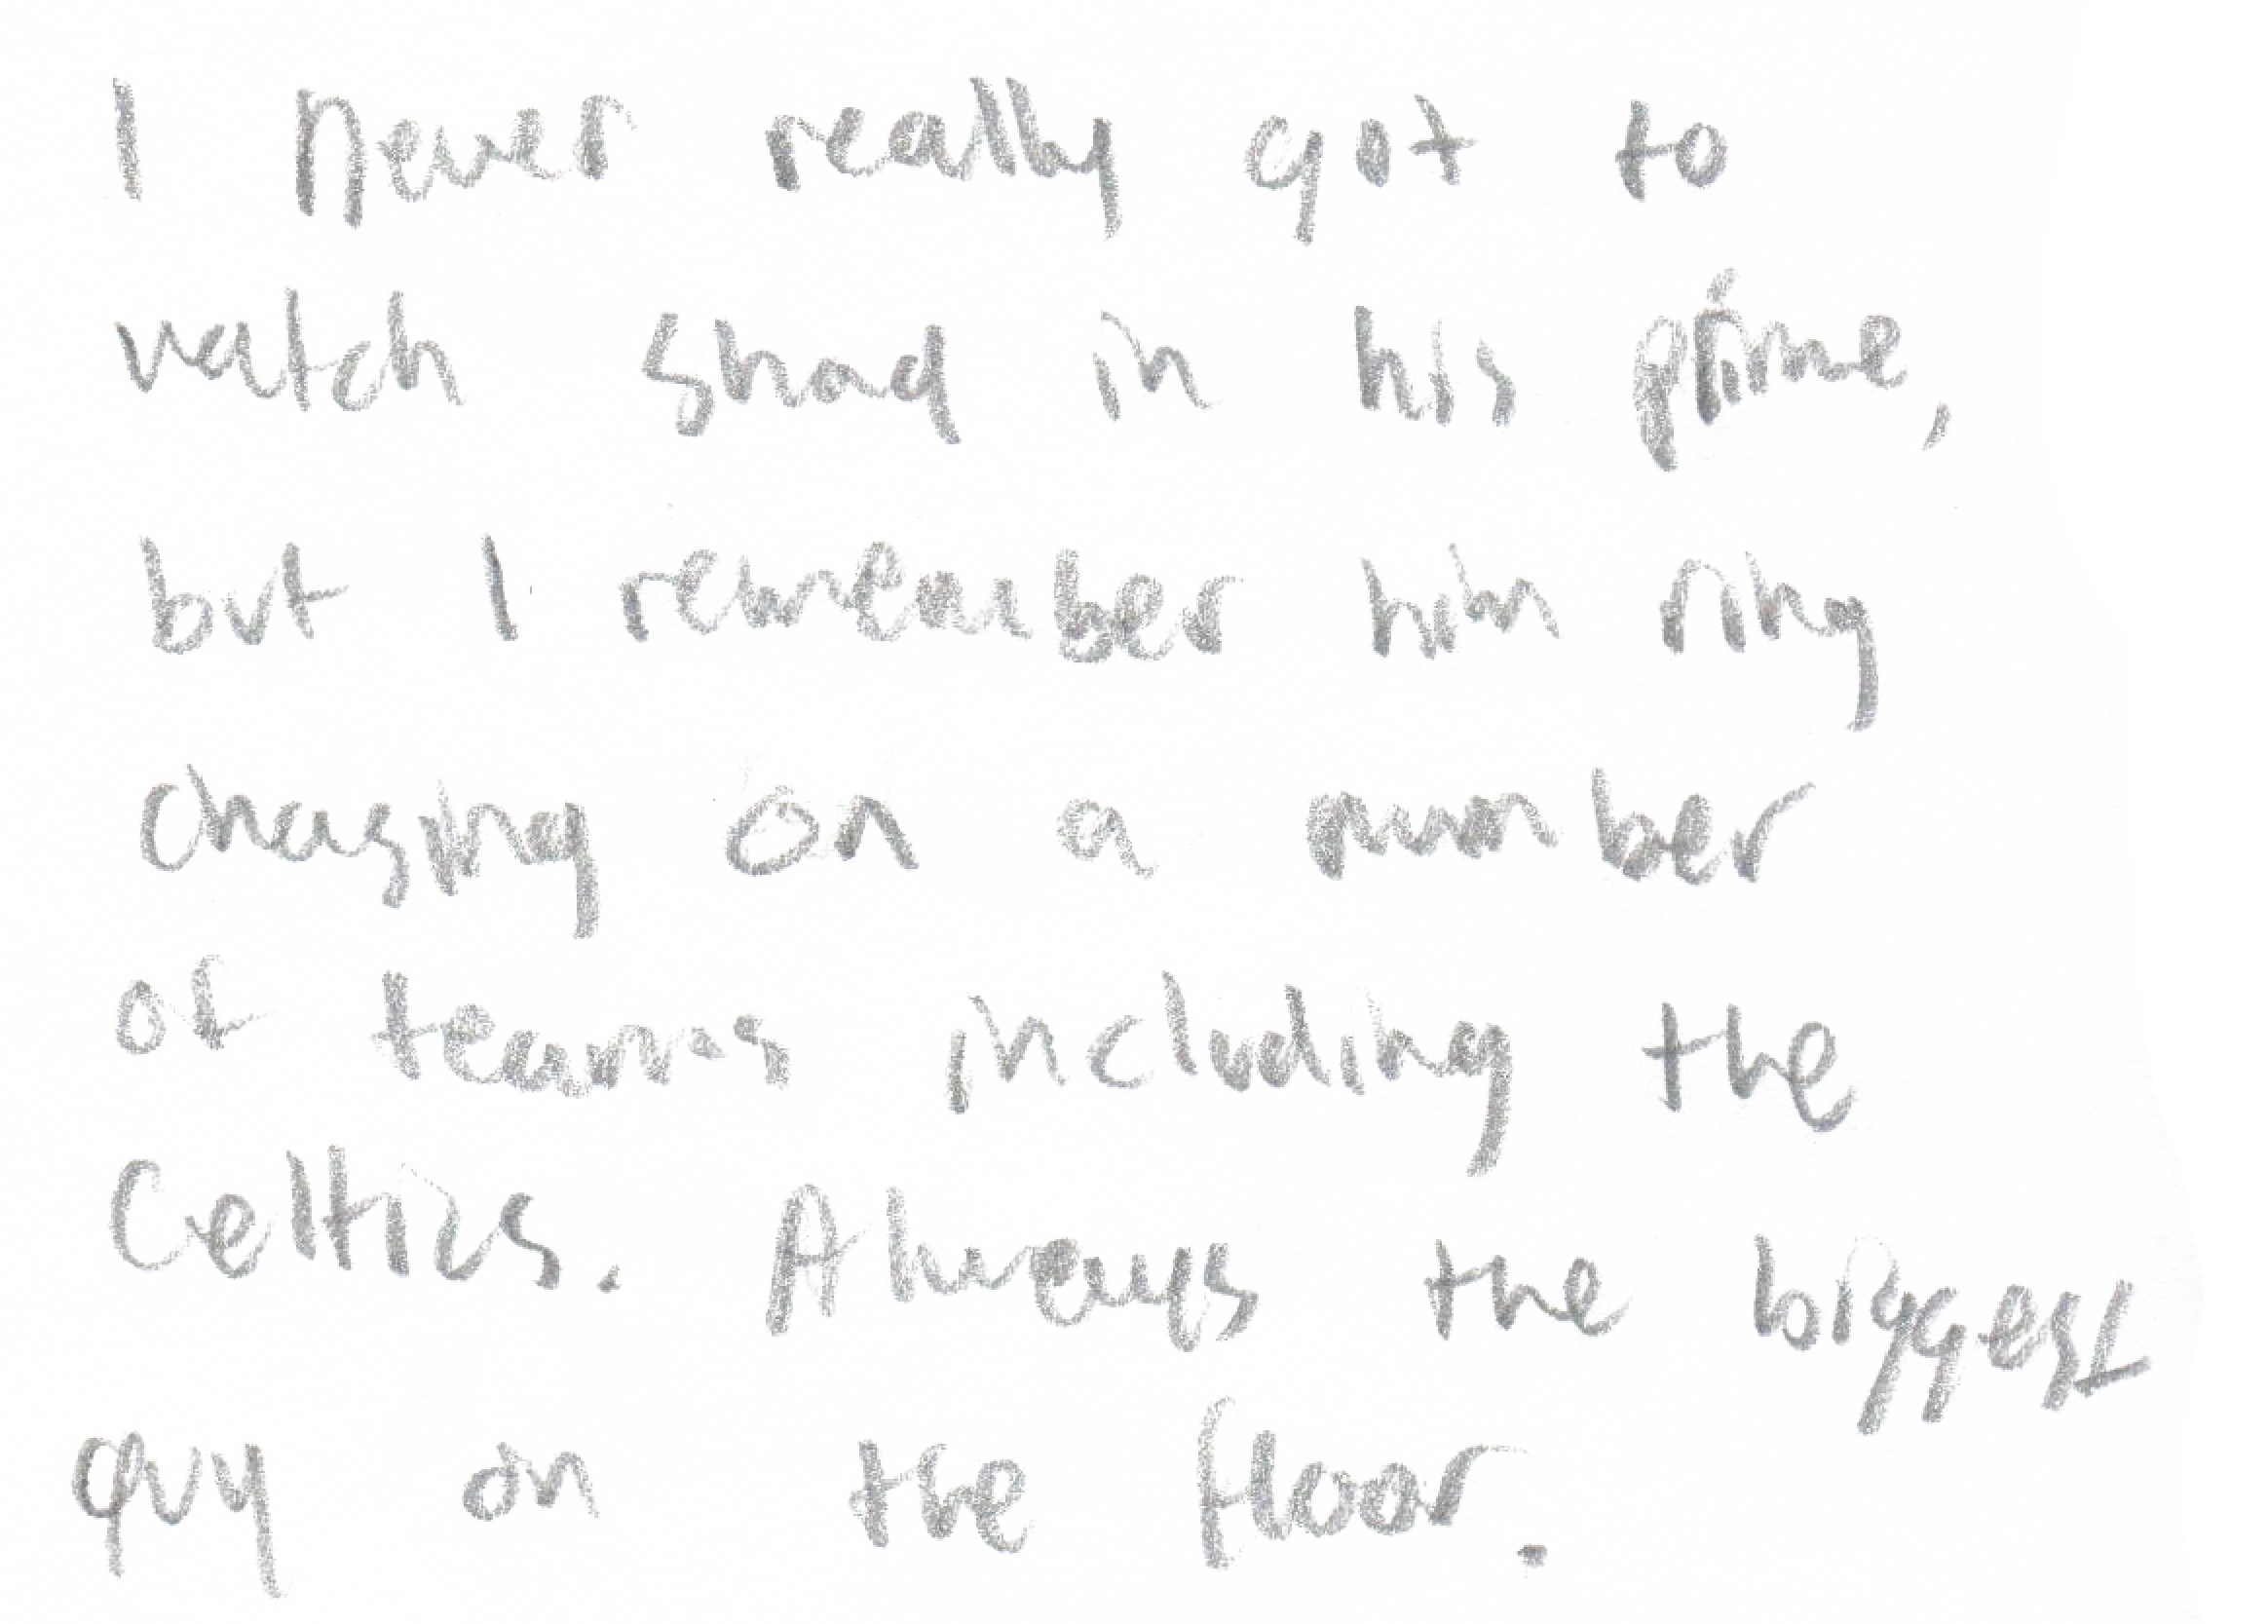 I never really got to
watch Shaq in his prime,
but I remember him ring
chasing on a number
of teams including the
Celtics. Always the biggest
guy on the floor.